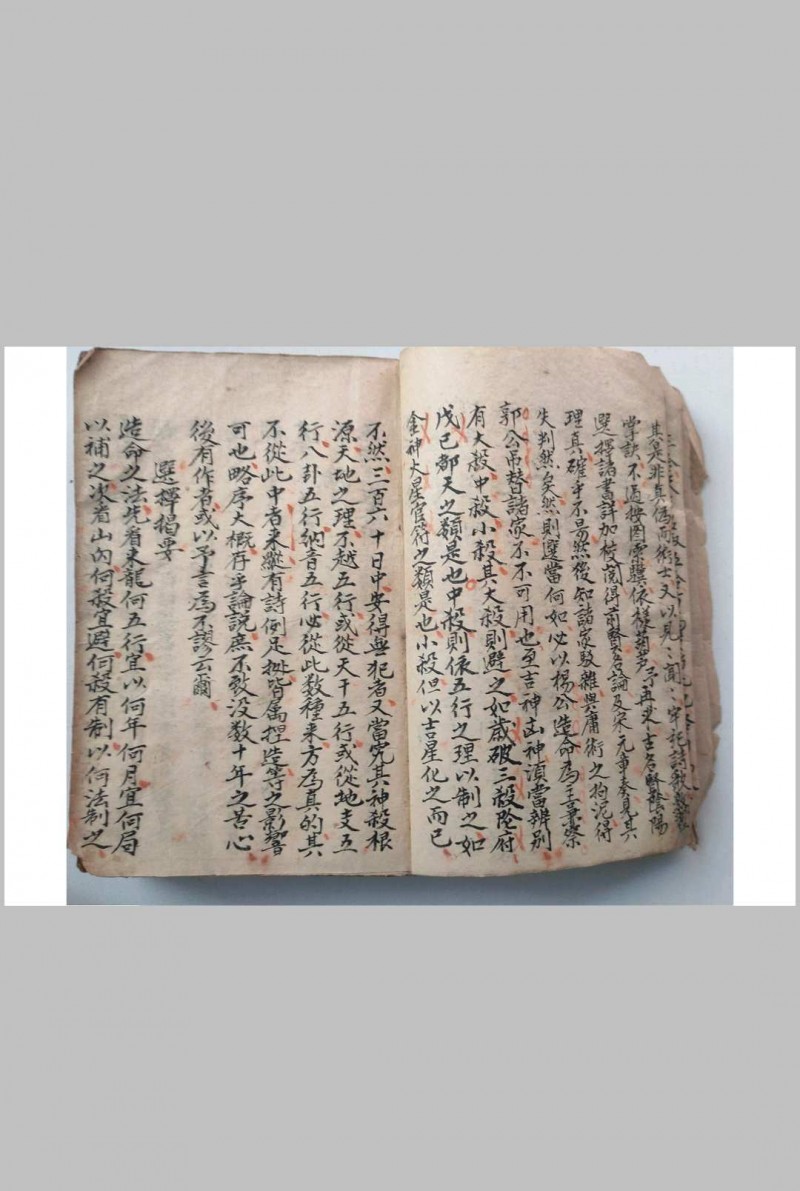 其是非真偽而術士又以見〻聞〻牢記詩歌
掌訣不過按图索驥依樣葫芦予再
選擇諸書詳加校閱得前賢名論及宋元章奏見其
理真確乎不易然後知諸家駁雜與庸術之拘泥得
失判然矣然則選當何如必以楊公造命為主業察
郭公吊替諸家不不可用也至吉神凶神須當辨别
有大殺中殺小殺其大殺則避之如歲破三殺陰府
戊己都天之類是也中殺則依五行之理以制之如
金神大星官符之類是也小殺但以吉星化之而已
不然三百六十日中安得無犯者又當究其神殺根
源天地之理不越五行或從天干五行或從地支五
行八卦五行納音五行必從此数種来方為真的其
不從此中者来縱有詩例足拠皆属捏造等之影響
可也略序大概存乎論說庶不致没数十年之苦心
後有作者或以予言為不謬云爾
選擇揭要
造命之法先看来龍何五行宜以何年何月宜何局
以補之次看山内何殺宜避何殺有制以何法制之